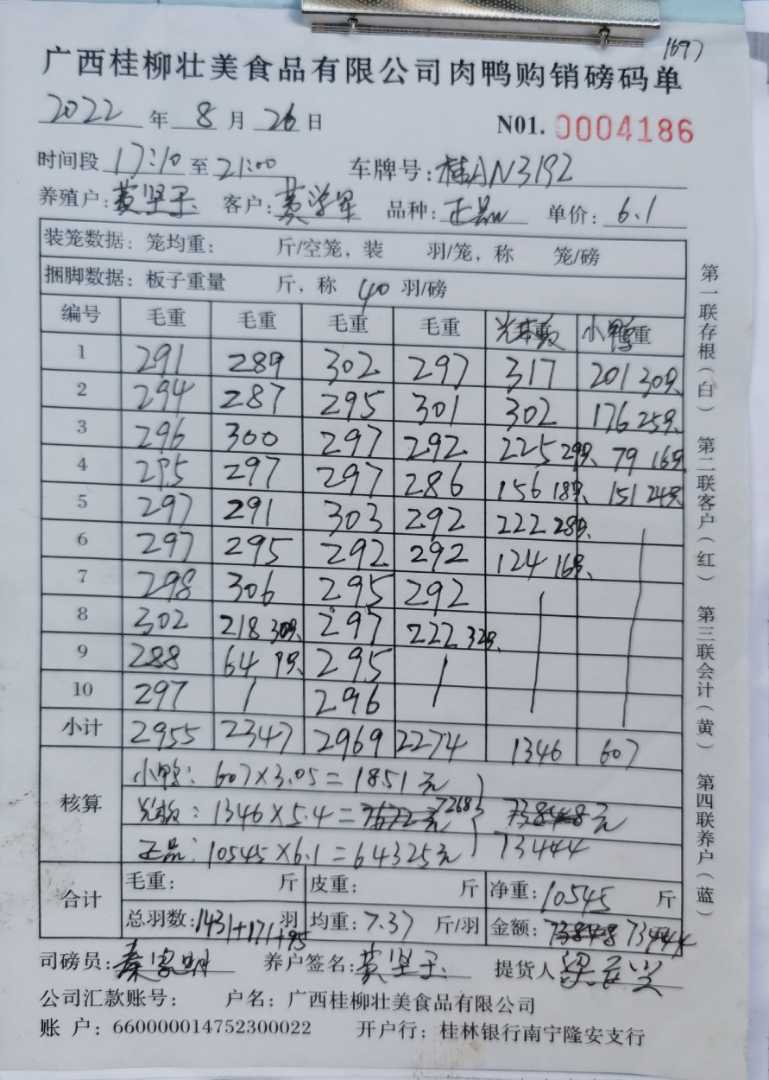 1697
广西桂柳壮美食品有限公司肉鸭购销磅码单
2022 年 8 月 26 日 N01. 0004186
时间段 17:10 至 21:00 车牌号: 桂AN3192
养殖户: 黄坚 客户: 黄学军 品种: 正品 单价: 6.1
装笼数据: 笼均重: 斤/空笼, 装 羽/笼, 称 笼/磅
捆脚数据: 板子重量 斤, 称 40 羽/磅
编号 毛重 毛重 毛重 毛重 小鸭重
1 291 289 302 297 317 201 30只
2 294 287 295 301 302 176 25只
3 296 300 297 292 225 29只 79 16只
4 295 297 297 286 156 18只 151 24只
5 297 291 303 292 222 28只
6 297 295 292 292 124 16只
7 298 306 295 292
8 302 218 30只 297 222 32只
9 288 64 9只 295
10 297 296
小计 2955 2347 2969 2274 1346 607
核算
小鸭: 607×3.05=1851元
1346×5.4= 7268
正品: 10545×6.1=64325元 73444
合计
毛重: 斤 皮重: 斤 净重: 10545 斤
总羽数: 1431+171+95 羽 均重: 7.37 斤/羽 金额: 73444
司磅员: 秦家明 养户签名: 黄坚 提货人
公司汇款账号: 户名: 广西桂柳壮美食品有限公司
账 户: 660000014752300022 开户行: 桂林银行南宁隆安支行
第一联存根(白) 第二联客户(红) 第三联会计(黄) 第四联养户(蓝)